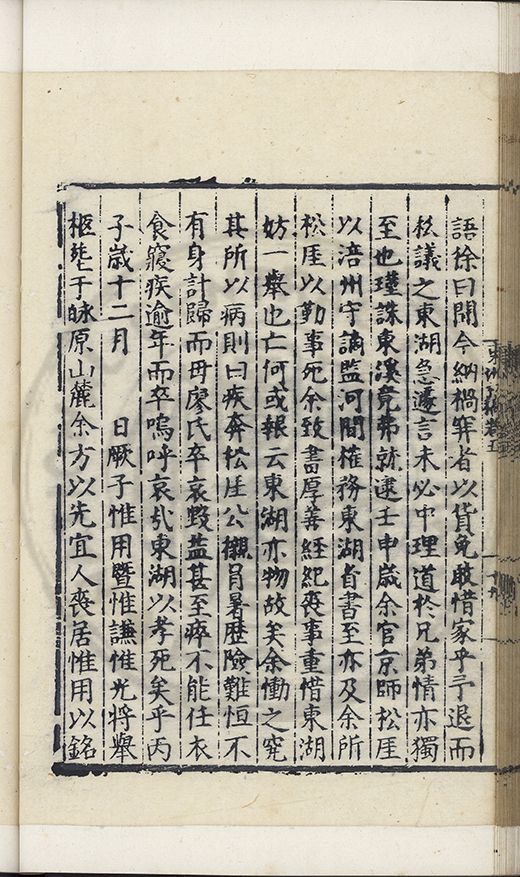 語徐曰聞今納禍穽者以貨免敢惜家乎予退而
私議之東湖急遽言未必中理道於兄弟情亦獨
至也瑾誅東溪竟弗就逮壬申歲余官京師松厓
以涪州守謫監河間榷務東湖省書至亦及余所
松厓以勤事死余致書厚善經紀喪事重惜東湖
妨一舉也亡何或報云東湖亦物故矣余慟之究
其所以病則曰疾奔松厓公櫬冐暑歷險難恒不
有身計歸而毋廖氏卒哀毀益甚至瘁不能任衣
食寢疾逾年而卒嗚呼哀哉東湖以孝死矣乎丙
子歲十二月 日厥子惟用暨惟謙惟光將舉
柩塟于咏原山麓余方以先宜人喪居惟用以銘